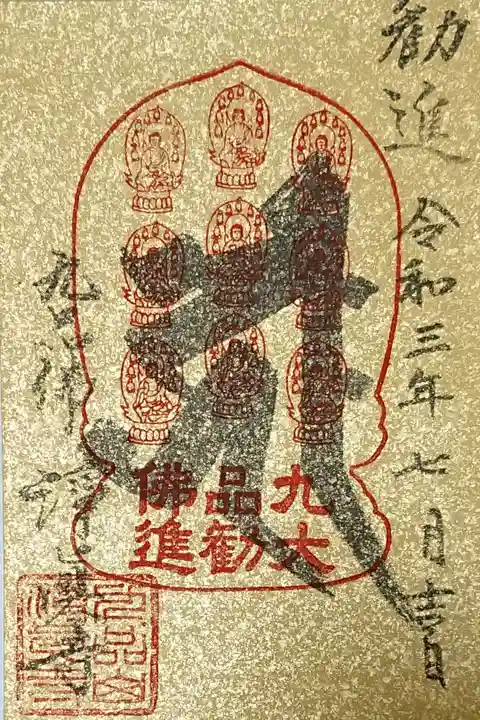 勧進 令和三年七月吉日
九品佛
大勸進
九品佛 淨真寺